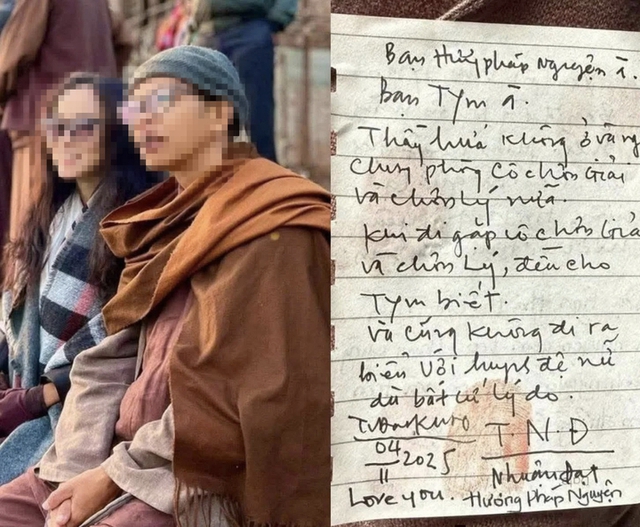 Bạn Hương pháp Nguyện à.
Bạn Tym à.
Thầy hứa không ở và ng
chung phòng cô chơn Giải
và chơn Lý nữa.
Khi đi gặp cô chơn Giả
và chơn Lý, đều cho
Tym biết.
và cũng không đi ra
biển với huynh đệ nữ
dù bất cứ lý do.
04
11
2025
T.N.Đ
Nhuận Đạt
Love you. Hương Pháp Nguyện